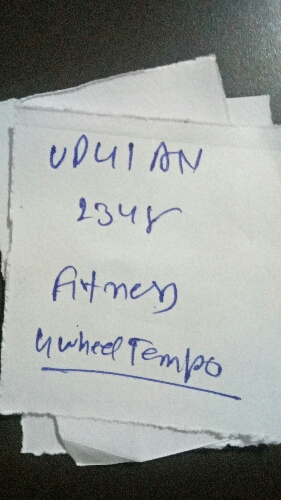 UP41 AN
2348
Fitness
4 wheel Tempo